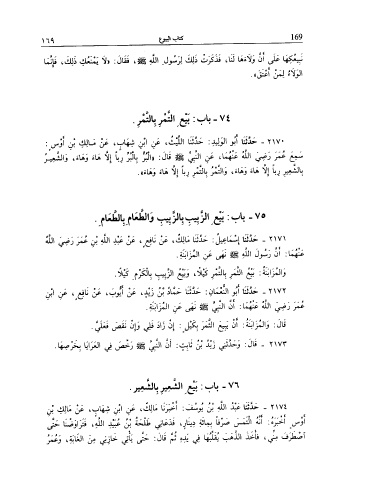 169 كتاب البيوع ١٦٩
نَبِيعُكِهَا عَلَى أَنَّ وَلَاءَهَا لَنَا، فَذَكَرَتْ ذَلِكَ لِرَسُولِ اللَّهِ ﷺ، فَقَالَ: «لَا يَمْنَعُكِ ذَلِكَ، فَإِنَّمَا
الوَلَاءُ لِمَنْ أَعْتَقَ».
٧٤ - باب: بَيْعِ التَّمْرِ بِالتَّمْرِ.
٢١٧٠ - حَدَّثَنَا أَبُو الوَلِيدِ: حَدَّثَنَا اللَّيْثُ، عَنِ ابْنِ شِهَابٍ، عَنْ مَالِكِ بْنِ أَوْسٍ:
سَمِعَ عُمَرَ رَضِيَ اللَّهُ عَنْهُمَا، عَنِ النَّبِيِّ ﷺ قَالَ: «البُرُّ بِالبُرِّ رِباً إِلَّا هَاءَ وَهَاءَ، وَالشَّعِيرُ
بِالشَّعِيرِ رِباً إِلَّا هَاءَ وَهَاءَ، وَالتَّمْرُ بِالتَّمْرِ رِباً إِلَّا هَاءَ وَهَاءَ».
٧٥ - باب: بَيْعِ الزَّبِيبِ بِالزَّبِيبِ وَالطَّعَامِ بِالطَّعَامِ.
٢١٧١ - حَدَّثَنَا إِسْمَاعِيلُ: حَدَّثَنَا مَالِكٌ، عَنْ نَافِعٍ، عَنْ عَبْدِ اللَّهِ بْنِ عُمَرَ رَضِيَ اللَّهُ
عَنْهُمَا: أَنَّ رَسُولَ اللَّهِ ﷺ نَهَى عَنِ المُزَابَنَةِ.
وَالمُزَابَنَةُ: بَيْعُ الثَّمَرِ بِالتَّمْرِ كَيْلًا، وَبَيْعُ الزَّبِيبِ بِالكَرْمِ كَيْلًا.
٢١٧٢ - حَدَّثَنَا أَبُو النُّعْمَانِ: حَدَّثَنَا حَمَّادُ بْنُ زَيْدٍ، عَنْ أَيُّوبَ، عَنْ نَافِعٍ، عَنِ ابْنِ
عُمَرَ رَضِيَ اللَّهُ عَنْهُمَا: أَنَّ النَّبِيَّ ﷺ نَهَى عَنِ المُزَابَنَةِ.
قَالَ: وَالمُزَابَنَةُ: أَنْ يَبِيعَ الثَّمَرَ بِكَيْلٍ: إِنْ زَادَ فَلِي وَإِنْ نَقَصَ فَعَلَيَّ.
٢١٧٣ - قَالَ: وَحَدَّثَنِي زَيْدُ بْنُ ثَابِتٍ: أَنَّ النَّبِيَّ ﷺ رَخَّصَ فِي العَرَايَا بِخَرْصِهَا.
٧٦ - باب: بَيْعِ الشَّعِيرِ بِالشَّعِيرِ.
٢١٧٤ - حَدَّثَنَا عَبْدُ اللَّهِ بْنُ يُوسُفَ: أَخْبَرَنَا مَالِكٌ، عَنِ ابْنِ شِهَابٍ، عَنْ مَالِكِ بْنِ
أَوْسٍ أَخْبَرَهُ: أَنَّهُ التَمَسَ صَرْفاً بِمِائَةِ دِينَارٍ، فَدَعَانِي طَلْحَةُ بْنُ عُبَيْدِ اللَّهِ، فَتَرَاوَضْنَا حَتَّى
اصْطَرَفَ مِنِّي، فَأَخَذَ الذَّهَبَ يُقَلِّبُهَا فِي يَدِهِ ثُمَّ قَالَ: حَتَّى يَأْتِيَ خَازِنِي مِنَ الغَابَةِ، وَعُمَرُ